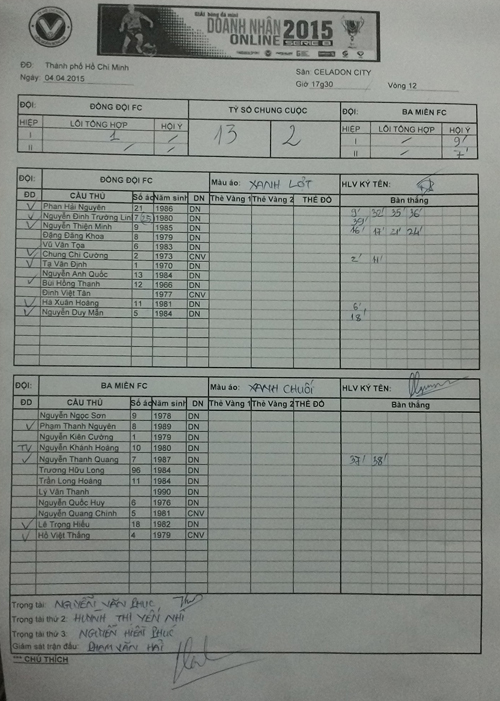 GIẢI bóng đá mini
DOANH NHÂN 2015
ONLINE SERIE B
ĐĐ: Thành phố Hồ Chí Minh
Sân: CELADON CITY
Ngày: 04.04.2015
Giờ 17g30 Vòng 12
ĐỘI: ĐỒNG ĐỘI FC TỶ SỐ CHUNG CUỘC ĐỘI: BA MIỀN FC
HIỆP LỖI TỔNG HỢP HỘI Ý 13 2 HIỆP LỖI TỔNG HỢP HỘI Ý
I 1 / I / 9'
II / / II / 7'
ĐỘI: ĐỒNG ĐỘI FC Màu áo: XANH LỢT HLV KÝ TÊN:
ĐD CẦU THỦ Số áo Năm sinh DN Thẻ Vàng 1 Thẻ Vàng 2 THẺ ĐỎ Bàn thắng
Phan Hải Nguyên 21 1986 DN 9' 30' 35' 36'
Nguyễn Đình Trường Lin 7 (25) 1980 DN 39'
Nguyễn Thiện Minh 9 1985 DN 16' 17' 21' 24'
Đặng Đăng Khoa 8 1979 DN
Vũ Văn Tọa 6 1983 DN
Chung Chí Cường 2 1973 CNV 2' 11'
Tạ Văn Định 1 1970 DN
Nguyễn Anh Quốc 13 1984 DN
Bùi Hồng Thanh 12 1966 DN
Đinh Việt Tân 1977 CNV
Hà Xuân Hoàng 11 1981 DN 6'
Nguyễn Duy Mẫn 5 1984 DN 18'
ĐỘI: BA MIỀN FC Màu áo: XANH CHUỐI HLV KÝ TÊN:
ĐD CẦU THỦ Số áo Năm sinh DN Thẻ Vàng 1 Thẻ Vàng 2 THẺ ĐỎ Bàn thắng
Nguyễn Ngọc Sơn 9 1978 DN
Phạm Thanh Nguyên 8 1989 DN
Nguyễn Kiên Cường 1 1979 DN
Nguyễn Khánh Hoàng 10 1980 DN
Nguyễn Thanh Quang 7 1987 DN 37' 38'
Trương Hữu Long 96 1984 DN
Trần Long Hoàng 11 1984 DN
Lý Văn Thanh 1990 DN
Nguyễn Quốc Huy 6 1976 DN
Nguyễn Quang Chính 5 1981 CNV
Lê Trọng Hiếu 18 1982 DN
Hồ Việt Thắng 4 1979 CNV
Trọng tài: NGUYỄN VĂN PHÚC
Trọng tài thứ 2: HUỲNH THỊ YẾN NHI
Trọng tài thứ 3: NGUYỄN HIỀN PHÚC
Giám sát trận đấu: PHẠM VĂN HẢI
*** CHÚ THÍCH